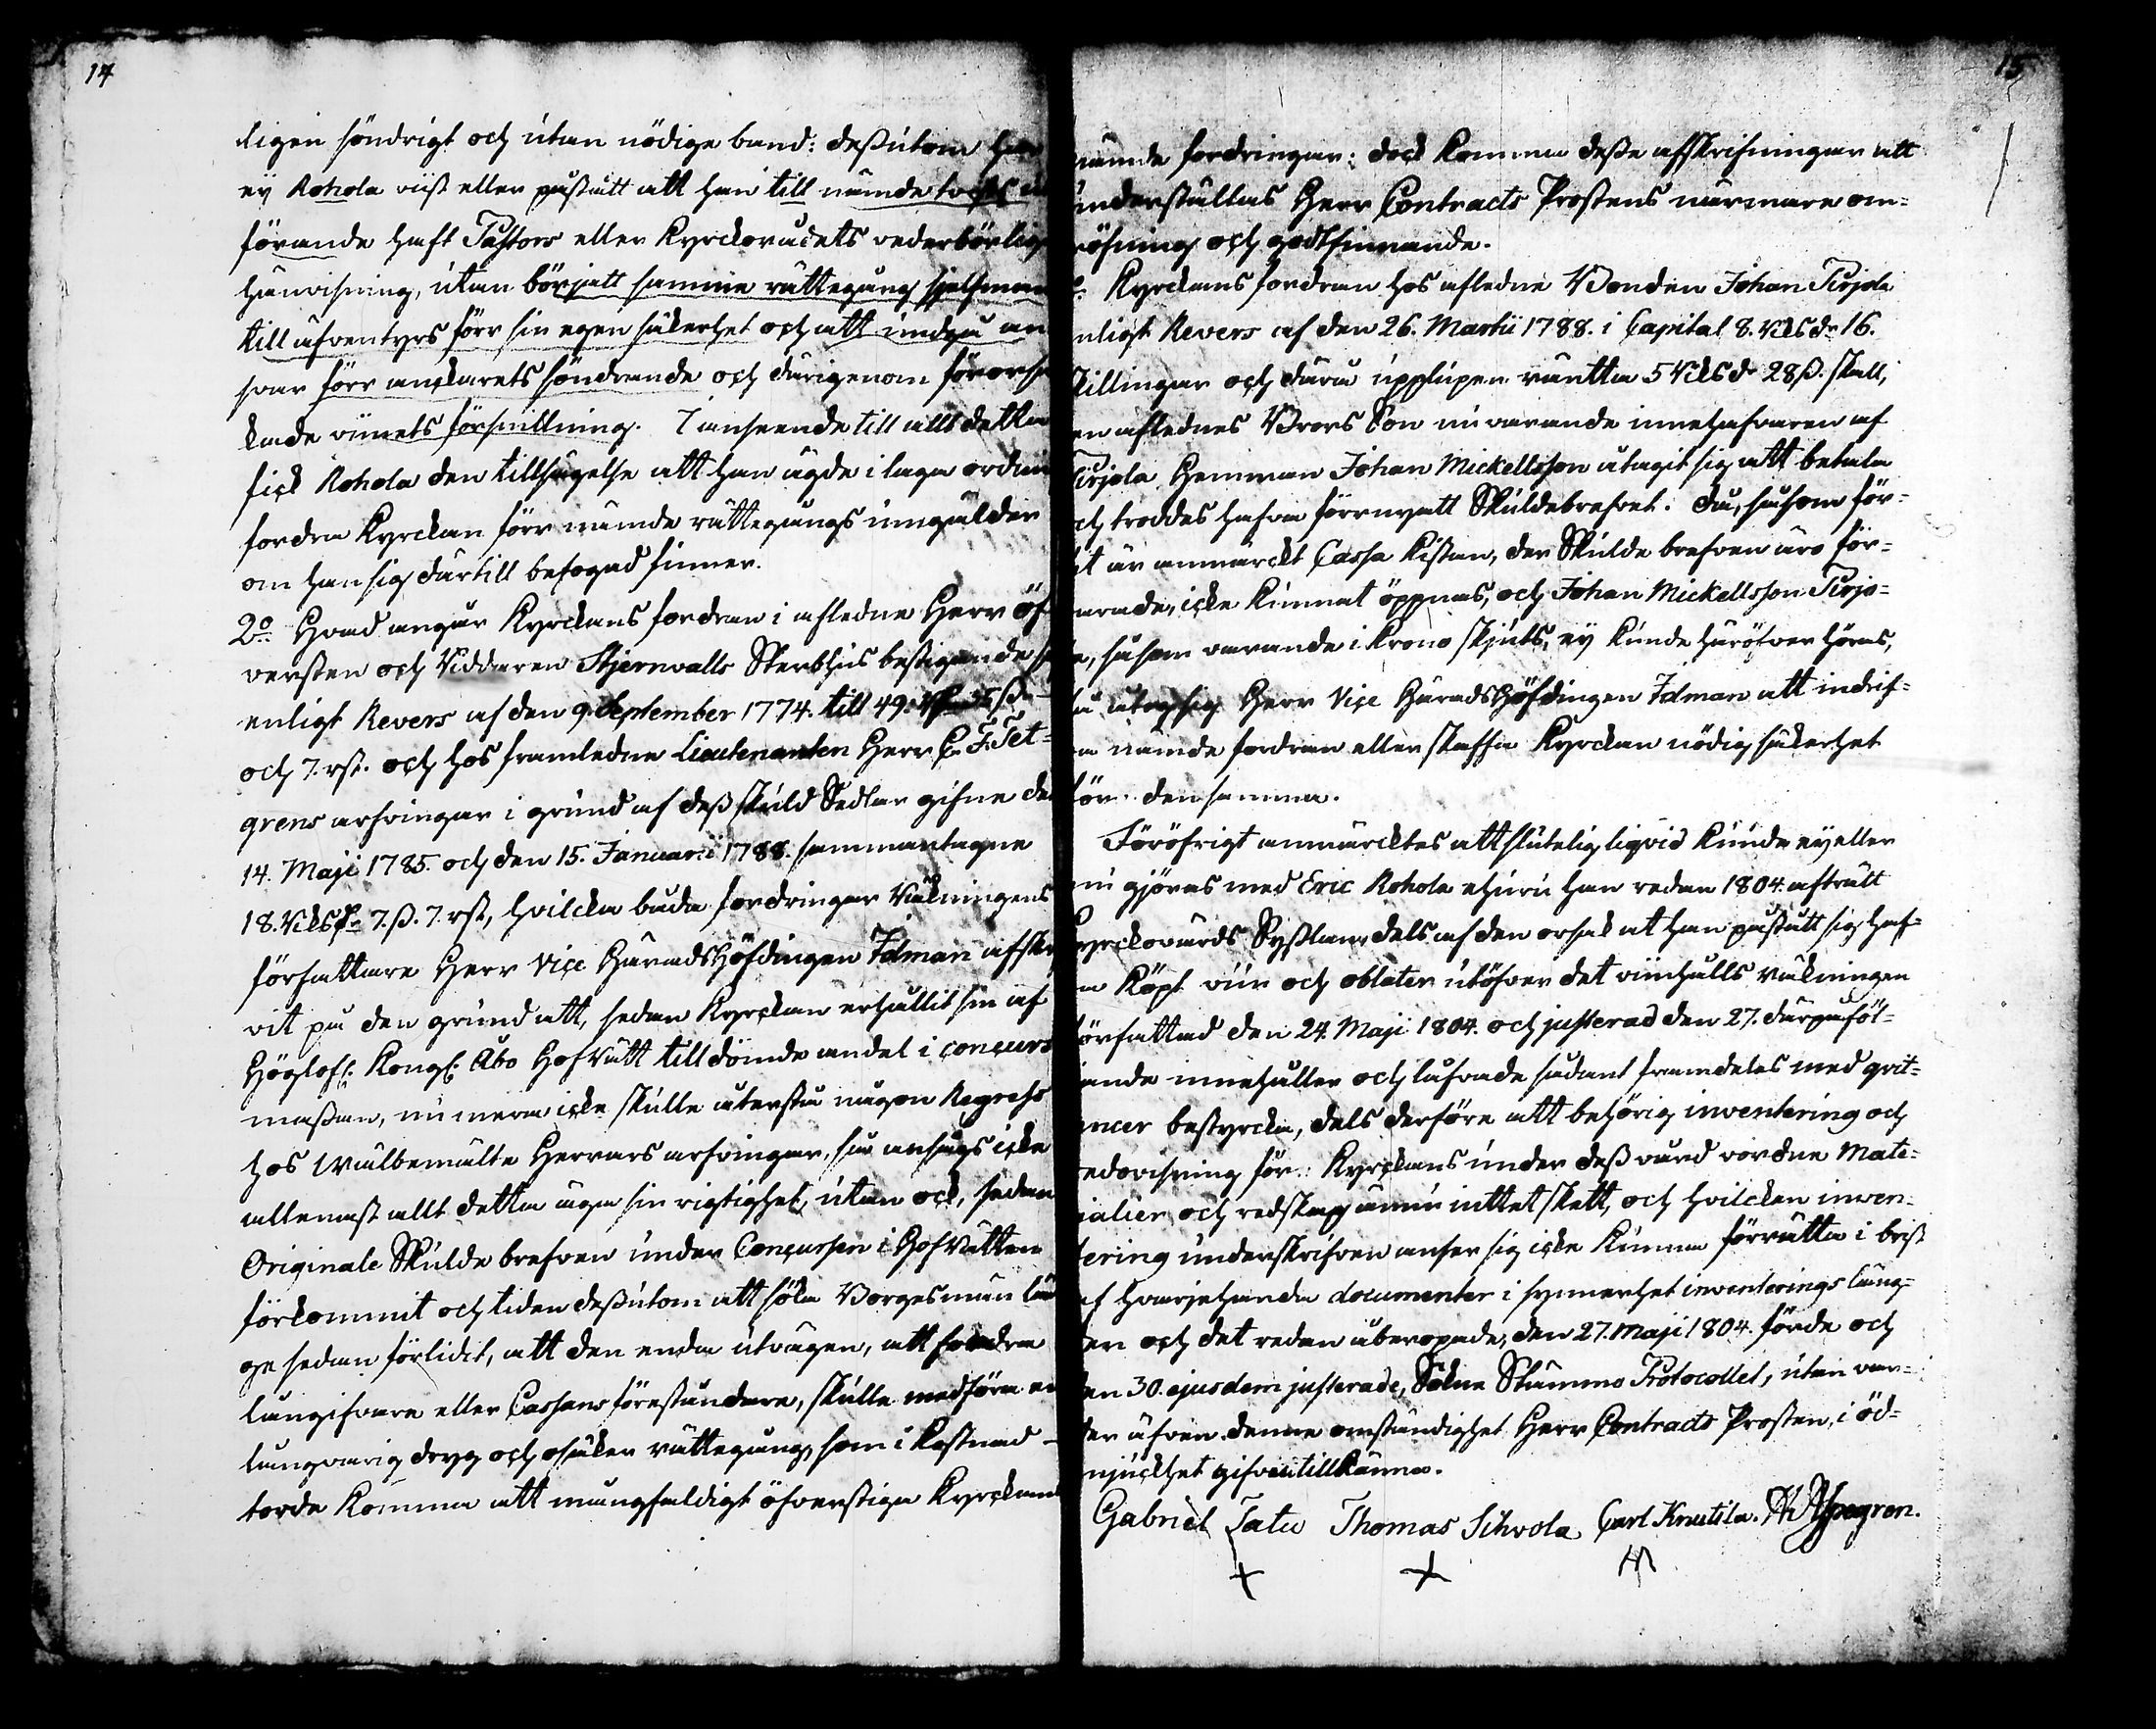 14
ligen söndrigt och utan nödige band: dessutom har
ey Rohola vist eller påstått att han till nämde
förande haft Pastors eller Kyrckorådets vederbörlige
hänvisning, utan börjatt samma rättegång sjelfmant
till äfventyrs förr sin egen säkerhet och att undgå an
svar förr anckarets söndrande och därigenom förorsa
kade vinets förspillning. I anseende till allt detta
fick Rohola den tillsägelse att han ägde i laga ordning
fordra Kyrckan förr nämde rättegångs umgälder
om han sig därtill befogad finner.
2o Hvad angår Kyrckans fordran i afledne Herr Öf
versten och Riddaren Stjernvalls Sterbhus bestigande sig
enligt Revers af den 9. September 1774. till 49.
och 7. rst. och hos framledne Lieutenanten Herr C. F. Tet=
grens arfvingar i grund af dess skuld Sedlar gifne den
14. Maji 1785. och den 15. Januarii 1788. sammantagne
18. Riksdr 7. ß. 7. rst, hvilcka båda fordringar Räkningens
författare Herr Vice Häradshöfdingen Idman afskri
vit på den grund att, sedan Kyrckan erhållit sin af
Höglofl. Kongl. Åbo Hofrätt tilldömde andel i concurs
massan, nu mera icke skulle återstå någon Regress
hos Wälbemälte Herrars arfvingar, så ansågs icke
allenast allt detta äga sin rigtighet, utan ock, sedan
Originale Skuldebrefven under Concursen i Hofrätten
förkommit och tiden dessutom att söka Borgesmän län
ge sedan förlidit, att den enda utvägen, att fordra
långifvare eller Cassans föreståndare, skulle medföra en
långvarig dryg och osäker rättegång, som i kostnad -
torde komma att mångfaldigt öfverstiga Kyrckans
15
nämde fordringar: dock komma desse afskrifningar att
understållas Herr Contracts Prostens närmare om=
pröfning och godtfinnande.
Kyrckans fordran hos afledne Bonden Johan Tirjola
enligt Revers af den 26. Martii 1788. i Capital 8. Riksdr 16.
skillingar och därå upplupen räntta 5 Riksdr 28 ß. skall,
en aflednes Brors Son nu varande innehafvaren af
Tirjola Hemman Johan Mickellsson åtagit sig att betala
och troddes hafva förrnyatt Skuldebrefvet. Då, såsom för=
ut är anmärckt Cassa Kistan, der Skuldebrefven äro för=
varade, icke kunnat öppnas, och Johan Mickellsson Tirjo=
la, såsom varande i krono skjuts, ey kunde häröfver höras,
så åtog sig Herr Vice Häradshöfdingen Idman att indrif=
va nämde fordran eller skaffa Kyrckan nödig säkerhet
för densamma.
Föröfrigt anmärcktes att slutelig liqvid kunde ey eller
nu gjöras med Eric Rohola ehuru han redan 1804. afträtt
Kyrckovärds Sysslan, dels af den orsak at han påstått sig haf=
va köpt vin och oblater utöfver det vinhålls räkningen
författad den 24. Maji 1804. och justerad den 27. därpåföl=
jande innehåller och lofvade sådant framdeles med qvit=
tancer bestyrcka, dels derföre att behörig inventering och
redovisning för Kyrckans under dess vård vordne Mate=
rialier och redskap ännu inttet skett, och hvilcken inven=
tering underskrifven anser sig icke kunna förrätta i brist
af hvarjehanda documenter i synnerhet inventerings läng=
den och det redan åberopade, den 27. Maji 1804. förde och
den 30. ejusdem justerade, Sokne Stämmo Protocollet, utan var=
der äfven denne omständighet Herr Contracts Prosten, i öd=
mjuckhet gifven tillkänna.
Gabriel Tatu Thomas Sihvola Carl Knutila. Aspegren.